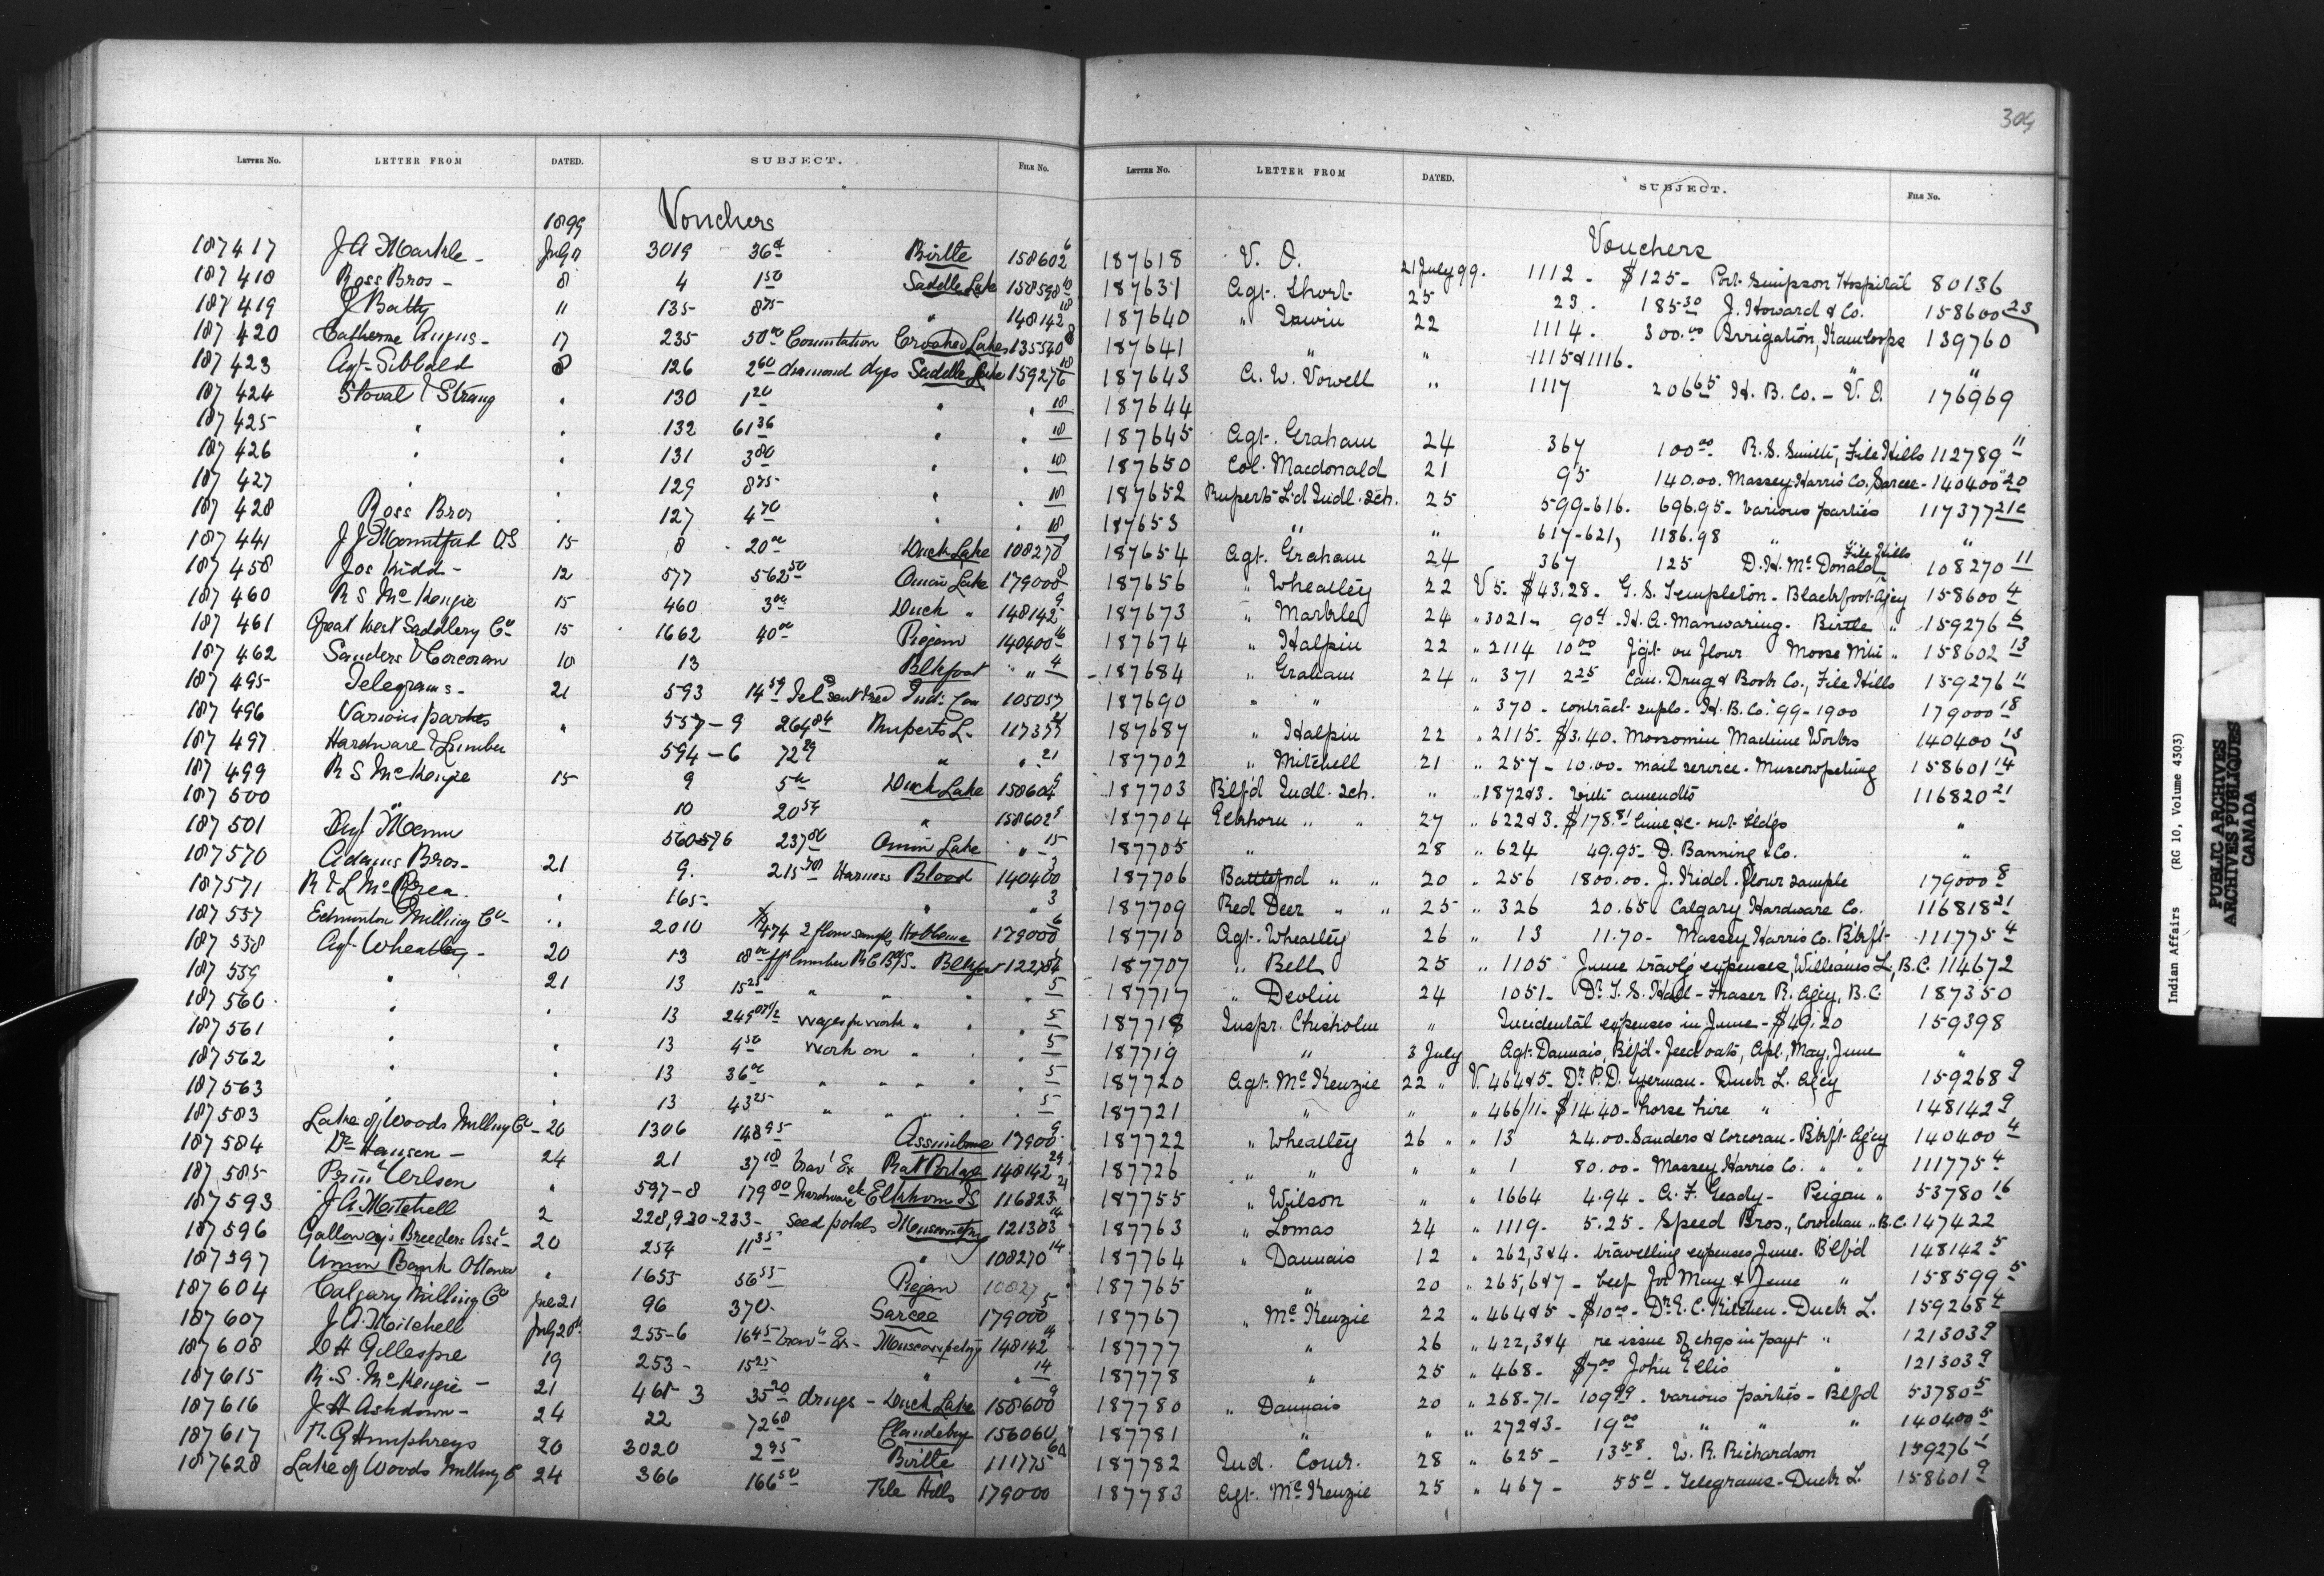 304
LETTER No. LETTER FROM DATED. SUBJECT. FILE No.
1899 Vouchers
187417 J A Markle - July 3019 - 36 Birtle 158602 6
187418 Ross Bros - 8 4 1 50 Saddle Lake 158598 10
187419 J Batty 11 135 8 75 " 148142 10
187420 Catherine Angus - 17 235 50 00 Commutation Crooked Lakes 135540 8
187423 Agt Sibbald 8 126 2 60 diamond dyes Saddle Lake 159276 10
187424 Stoval & Strang " 130 1 20 " " 10
187425 " " 132 61 36 " " 10
187426 " " 131 3 80 " " 10
187427 " " 129 8 75 " " 10
187428 Ross Bros " 127 4 70 " " 10
187441 J J Mountfort DS 15 8 20 00 Duck Lake 108270 9
187458 Jos Kidd - 12 577 562 50 Onion Lake 179000
187460 R S McKenzie 15 460 3 00 Duck " 148142 9
187461 Great West Saddlery Co 15 1662 40 00 Piegan 140400 16
187462 Sanders & Corcoran 10 13 Blkfoot " 4
187495 Telegrams - 21 593 14 59 Ind. Com 105057
187496 Various parties " 557-9 264 84 Ruperts L - 117377 21
187497 Hardware & Lumber 594-6 72 29 " " 21
187499 R S McKenzie 15 9 5 00 Duck Lake 158604 9
187500 " 10 20 54 " 158602 9
187501 Agt Mann 560-576 237 80 Onion Lake " 15
187570 Adams Bros - 21 9. 215 Harness Blood 140400 3
187571 R & L McCrea " 165 - " " 3
187557 Edmonton Milling Co - " 2010 474 2 flour sample Hobbema 179000 6
187558 Agt Wheatley - 20 13 lumber R C B/S - Blkfoot 122784 5
187559 " 21 13 15 25 " " " " 5
187560 " " 13 249 wages for work " " " 5
187561 " " 13 4 50 work on " " " 5
187562 " " 13 36 00 " " " " 5
187563 " " 13 43 25 " " " " 5
187583 Lake of Woods Milling Co - 20 1306 148 95 Assiniboine 17900 9
187584 Dr Hansen - 24 21 37 18 Trav' Ex Rat Portage 148142 29
187585 Prin' Wilson " 597-8 179 80 hardware etc Elkhorn IS 116823 21
187593 J A Mitchell 2 228, 930-233 - Seed potats Muscowptng 121303 14
187596 Galloway's Breeders Ass' - 20 254 11 35 " 108270 14
187597 Union Bank Ottawa " 1655 56 55 Piegan 10827
187604 Calgary Milling Co July 21 96 370. Sarcee 179000 5
187607 J A Mitchell July 20th 255-6 16 45 Trav' Ex - Muscowpetng 148142 14
187608 D H Gillespie 19 253 - 15 25 " " 14
187615 R. S. McKenzie - 21 461-3 35 20 drugs - Duck Lake 158600 9
187616 J H Ashdown - 24 22 72 68 Clandeboye 156060
187617 N. G Humphreys 20 3020 2 95 Birtle 111775 6
187628 Lake of Woods Milling C 24 366 166 50 File Hills 179000
LETTER No. LETTER FROM DATED. SUBJECT. FILE No.
Vouchers
187618 V. O. 21 July 99. 1112 - $125 - Port Simpson Hospital 80136
187631 Agt. Short 25 23. 185 30 J. Howard & Co. 158600 23
187640 " Irwin 22 1114. 300.00 Irrigation, Kamloops 139760
187641 " " 1115 & 1116. " "
187643 A. W. Vowell " 1117 206 65 H. B. Co. - V. O. 176969
187644
187645 Agt. Graham 24 367 100 00 R. S. Smith, File Hills 112789 11
187650 Col. Macdonald 21 95 140.00. Massey-Harris Co., Sarcee - 140400 20
187652 Rupert's Ld Indl. Sch. 25 599-616. 696.95 - Various parties 117377 21c
187653 " " 617-621, 1186.98 " "
187654 Agt. Graham 24 367 125 D. H. McDonald File Hills 108270 11
187656 " Wheatley 22 V 5 - $43.28 - G. S. Templeton - Blackfoot Agcy 158600 4
187673 " Markle 24 " 3021 - 90 ct - H. A. Manwaring - Birtle " 159276 6
187674 " Halpin 22 " 2114 10 00 frgt on flour Moose Mtn " 158602 13
187684 " Graham 24 " 371 2 25 Can. Drug & Book Co., File Hills 159276 11
187690 " " " 370 - contract supls - H. B. Co. '99-1900 179000 18
187687 " Halpin 22 " 2115 - $3.40. Moosomin Machine Works 140400 13
187702 " Mitchell 21 " 257 - 10.00 - mail service - Muscowpetung 158601 14
187703 Blfd Indl. Sch. " " 1872 & 3. with amendts 116820 21
187704 Elkhorn " " 27 " 622 & 3. $178. 81 lime &c - out-bldgs "
187705 " 28 " 624 49.95 - D. Banning & Co. "
187706 Battlefnd " " 20 " 256 1800.00. J. Kidd. flour sample 179000 8
187709 Red Deer " " 25 " 326 20.65 Calgary Hardware Co. 116818 21
187710 Agt. Wheatley 26 " 13 11.70 - Massey Harris Co. Blkft - 111775 4
187707 " Bell 25 " 1105 June travlg expenses, Williams L, B.C. 114672
187717 " Devlin 24 1051 - Dr. T. S. Hall - Fraser R. Agcy, B.C. 187350
187718 Inspr. Chisholm " Incidental expenses in June - $49.20 159398
187719 " 3 July Agt. Daunais, Blfd - feed oats, Apl., May, June "
187720 Agt. McKenzie 22 " V. 464 & 5 - Dr. P. D. - Duck L. Agcy 159268 9
187721 " " " 466/11 - $14.40 - horse hire " 148142 9
187722 " Wheatley 26 " " 13 24.00 - Sanders & Corcoran - Blkft Agcy 140400 4
187726 " " " " 1 80.00 - Massey Harris Co. " " 111775 4
187755 " Wilson " " 1664 4.94 - A. F. Grady - Peigan " 53780 16
187763 " Lomas 24 " 1119 - 5.25 - Speed Bros., Cowichan " B.C. 147422
187764 " Daunais 12 " 262, 3 & 4 - travelling expenses June. Blfd 148142 5
187765 " 20 " 265, 6 & 7 - beef for May & June " 158599 5
187767 " McKenzie 22 " 464 & 5 - $10 00 - Dr. E. C. Kitchen - Duck L. 159268
187777 " 26 " 422, 3 & 4 re issue of chqs in payt " 121303 9
187778 " 25 " 468 - $7 00 John Ellis " 121303 9
187780 " Daunais 20 " 268-71 - 109 99 - various parties - Blfd 53780 5
187781 " " " 272 & 3 - 19 00 " " " 140400 5
187782 Ind. Comr. 28 " 625 - 13 58. W. R. Richardson 159276
187783 Agt. McKenzie 25 " 467 - 55 ct - Telegrams - Duck L. 158601 9
Indian Affairs (RG 10, Volume 4303)
PUBLIC ARCHIVES
ARCHIVES PUBLIQUES
CANADA